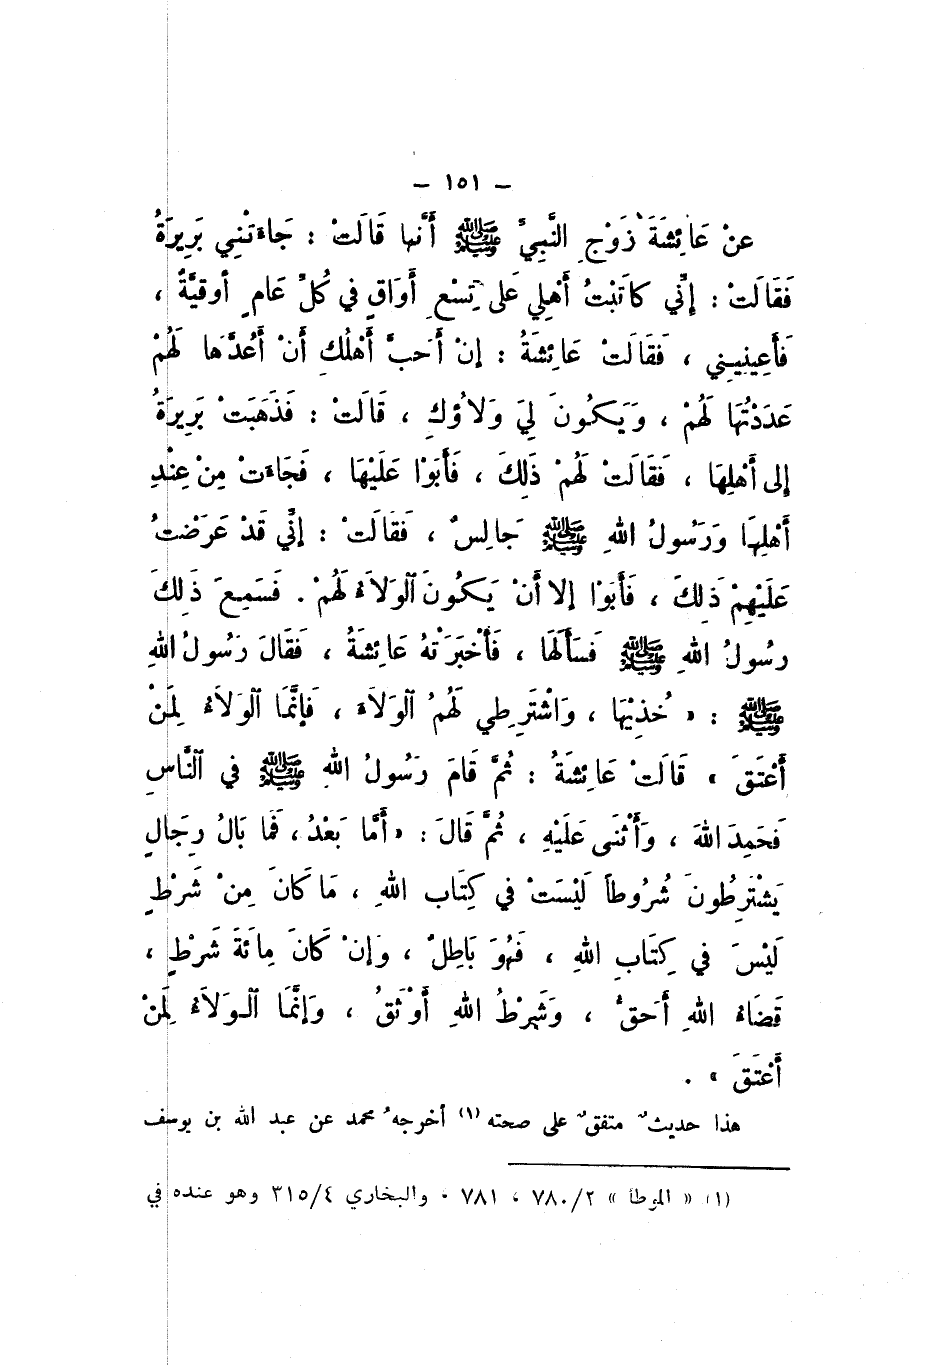 – ١٥١ –
عَنْ عَائِشَةَ زَوْجِ النَّبِيِّ ﷺ أَنَّها قَالَتْ : جَاءَتْنِي بَرِيرَةُ
فَقَالَتْ : إنِّي كَاتَبْتُ أَهْلِي عَلى تِسْعِ أَوَاقٍ في كُلِّ عَامٍ أُوقِيَّةٌ ،
فَأَعِينِينِي ، فَقَالَتْ عَائِشَةُ : إنْ أَحَبَّ أَهْلُكِ أَنْ أَعُدَّهَا لَهُمْ
عَدَدْتُهَا لَهُمْ ، وَيَكُونَ لِيَ وَلاؤُكِ ، قَالَتْ : فَذَهَبَتْ بَرِيرَةُ
إلى أَهْلِهَا ، فَقَالَتْ لَهُمْ ذَلِكَ ، فَأَبَوْا عَلَيْهَا ، فَجَاءَتْ مِنْ عِنْدِ
أَهْلِهَا وَرَسُولُ اللهِ ﷺ جَالِسٌ ، فَقَالَتْ : إنِّي قَدْ عَرَضْتُ
عَلَيْهِمْ ذَلِكَ ، فَأَبَوْا إلا أَنْ يَكُونَ ٱلْوَلاَءُ لَهُمْ . فَسَمِعَ ذَلِكَ
رسُولُ اللهِ ﷺ فَسَأَلَهَا ، فَأَخْبَرَتْهُ عَائِشَةُ ، فَقَالَ رَسُولُ اللهِ
ﷺ : « خُذِيْهَا ، وَاشْتَرِطِي لَهُمُ ٱلْوَلاَءَ ، فَإنَّمَا ٱلْوَلاَءُ لِمَنْ
أَعْتَقَ » قَالَتْ عَائِشَةُ : ثُمَّ قَامَ رَسُولُ اللهِ ﷺ في ٱلنَّاسِ
فَحَمِدَ اللهَ ، وَأَثْنَى عَلَيْهِ ، ثُمَّ قَالَ : « أَمَّا بَعْدُ ، فَمَا بَالُ رِجَالٍ
يَشْتَرِطُونَ شُرُوطاً لَيْسَتْ في كِتَابِ اللهِ ، مَا كَانَ مِنْ شَرْطٍ
لَيْسَ في كِتَابِ اللهِ ، فَهُوَ بَاطِلٌ ، وَإنْ كَانَ مِائَةَ شَرْطٍ ،
قَضَاءُ اللهِ أَحَقُّ ، وَشَرْطُ اللهِ أَوْثَقُ ، وَإنَّمَا ٱلْوَلاَءُ لِمَنْ
أَعْتَقَ » .
هذا حديثٌ متفقٌ على صحته (١) أخرجهُ محمد عن عبد الله بن يوسف
(١) « الموطأ » ٧٨٠/٢ ، ٧٨١ . والبخاري ٣١٥/٤ وهو عنده في